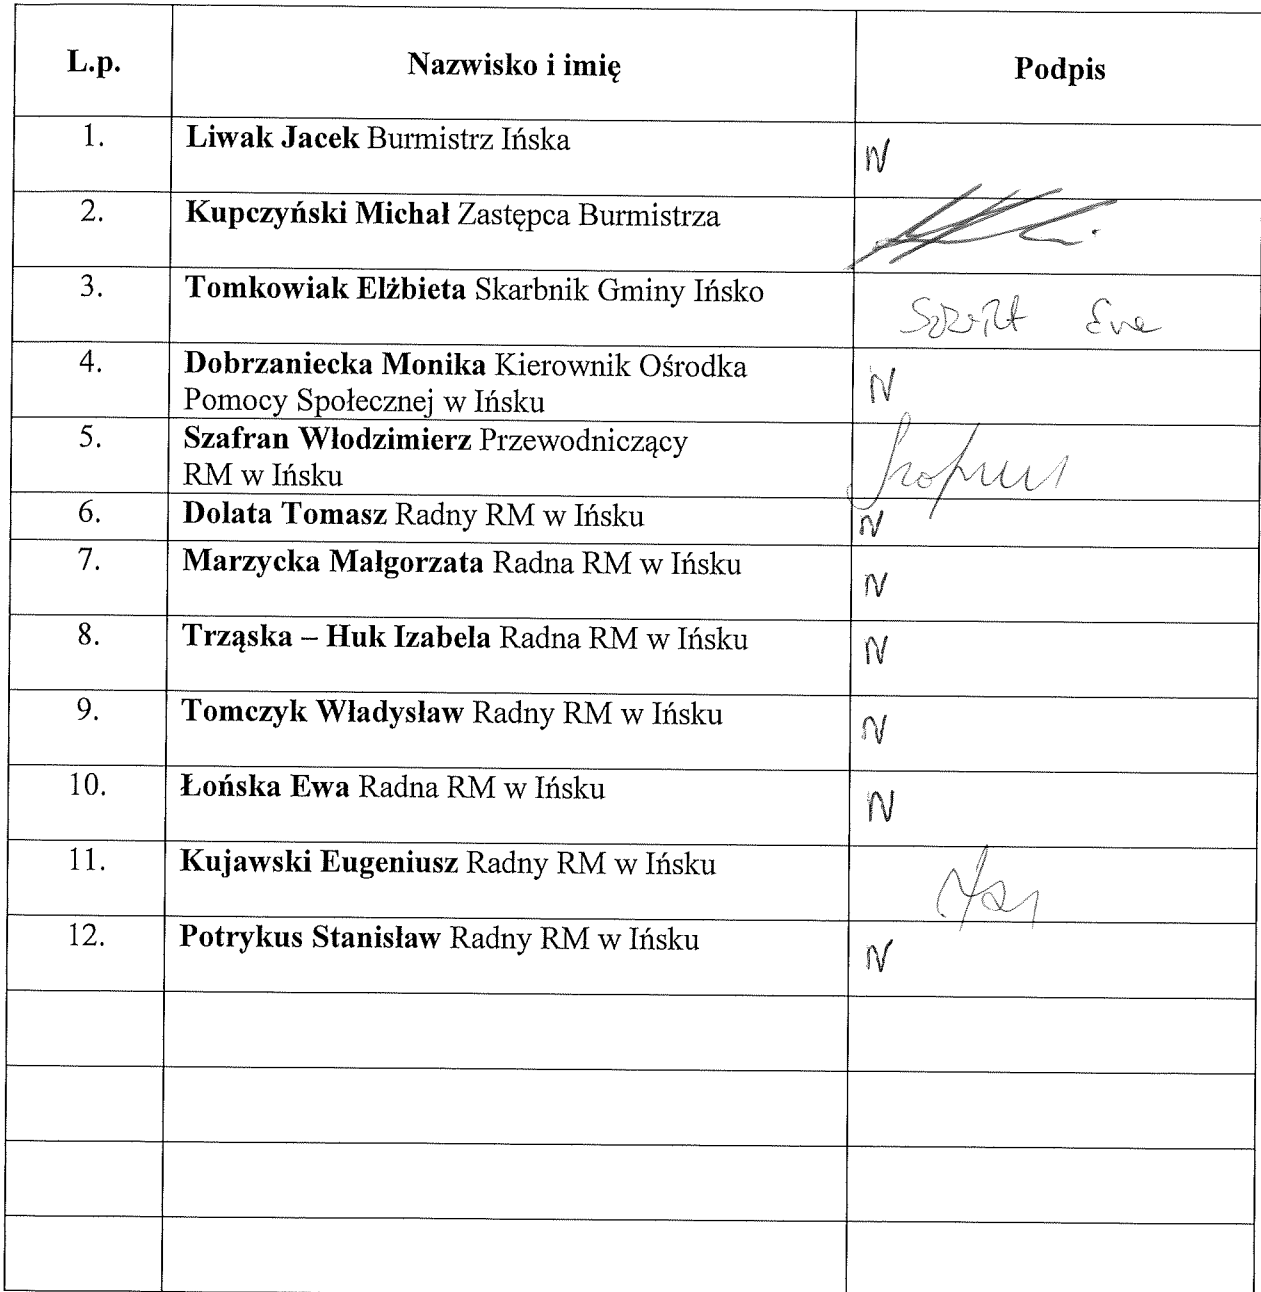 L.p. Nazwisko i imię Podpis
1. Liwak Jacek Burmistrz Ińska N
2. Kupczyński Michał Zastępca Burmistrza
3. Tomkowiak Elżbieta Skarbnik Gminy Ińsko
4. Dobrzaniecka Monika Kierownik Ośrodka N
Pomocy Społecznej w Ińsku
5. Szafran Włodzimierz Przewodniczący
RM w Ińsku
6. Dolata Tomasz Radny RM w Ińsku N
7. Marzycka Małgorzata Radna RM w Ińsku N
8. Trząska – Huk Izabela Radna RM w Ińsku N
9. Tomczyk Władysław Radny RM w Ińsku N
10. Łońska Ewa Radna RM w Ińsku N
11. Kujawski Eugeniusz Radny RM w Ińsku
12. Potrykus Stanisław Radny RM w Ińsku N